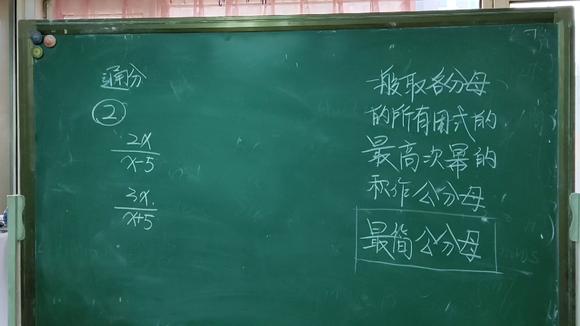 通分
②
2x
x-5
3x
x+5
一般取各分母
的所有因式的
最高次幂的
积作公分母
最简公分母